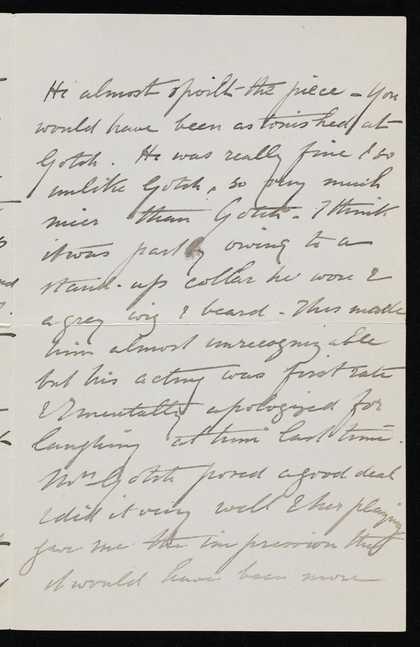 He almost spoilt the piece - You
would have been astonished at
Gotch. He was really fine & so
unlike Gotch, so very much
nicer than Gotch - I think
it was partly owing to a
stand-up collar he wore &
a grey wig & beard - This made
him almost unrecognizable
but his acting was first rate
& I mentally apologized for
laughing at him last time.
Mrs Gotch posed a good deal
& did it very well & her playing
gave me the impression that
it would have been more